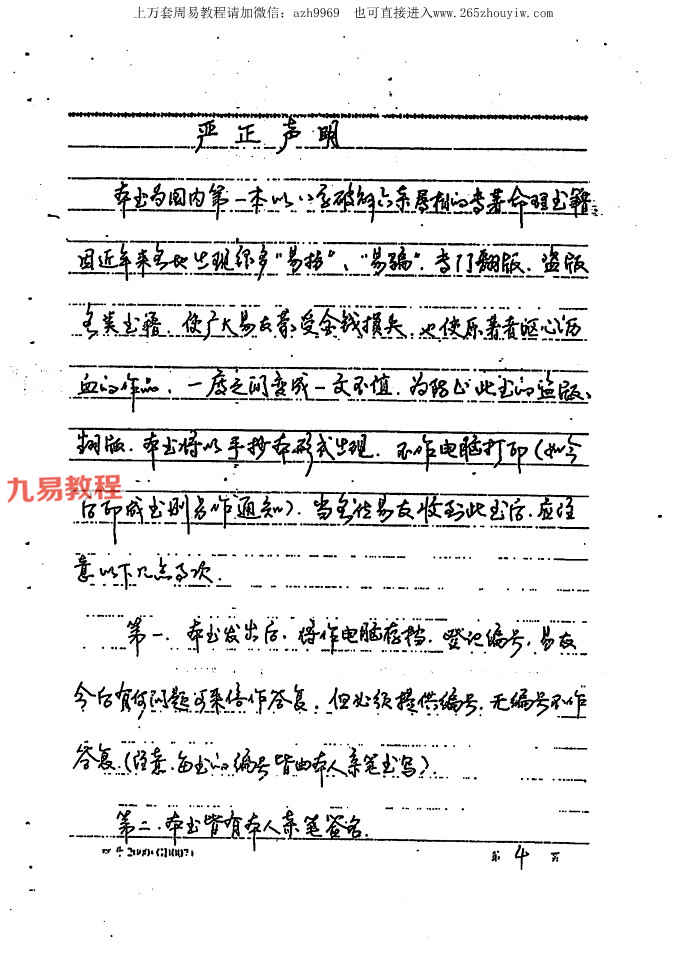 上万套周易教程请加微信：azh9969 也可直接进入www.265zhouyiw.com
严正声明
本书为国内第一本以八字破解六亲属相的专著命理书籍
因近年来各地出现许多“易抄”、“易骗”.专门翻版.盗版
各类书籍.使广大易友蒙受金钱损失.也使原著者呕心沥
血的作品.一度之间变成一文不值.为防止此书的盗版、
翻版.本书将以手抄本形式出现.不作电脑打印(如今
九易教程
后印成书则另作通知).当各位易友收到此书后.应注
意以下几点事次.
第一.本书发出后.将作电脑存挡.登记编号.易友
今后有何问题可来信作答复.但必须提供编号.无编号不作
答复.(注意.每书的编号皆由本人亲笔书写).
第二.本书皆有本人亲笔签名.
第 4 页